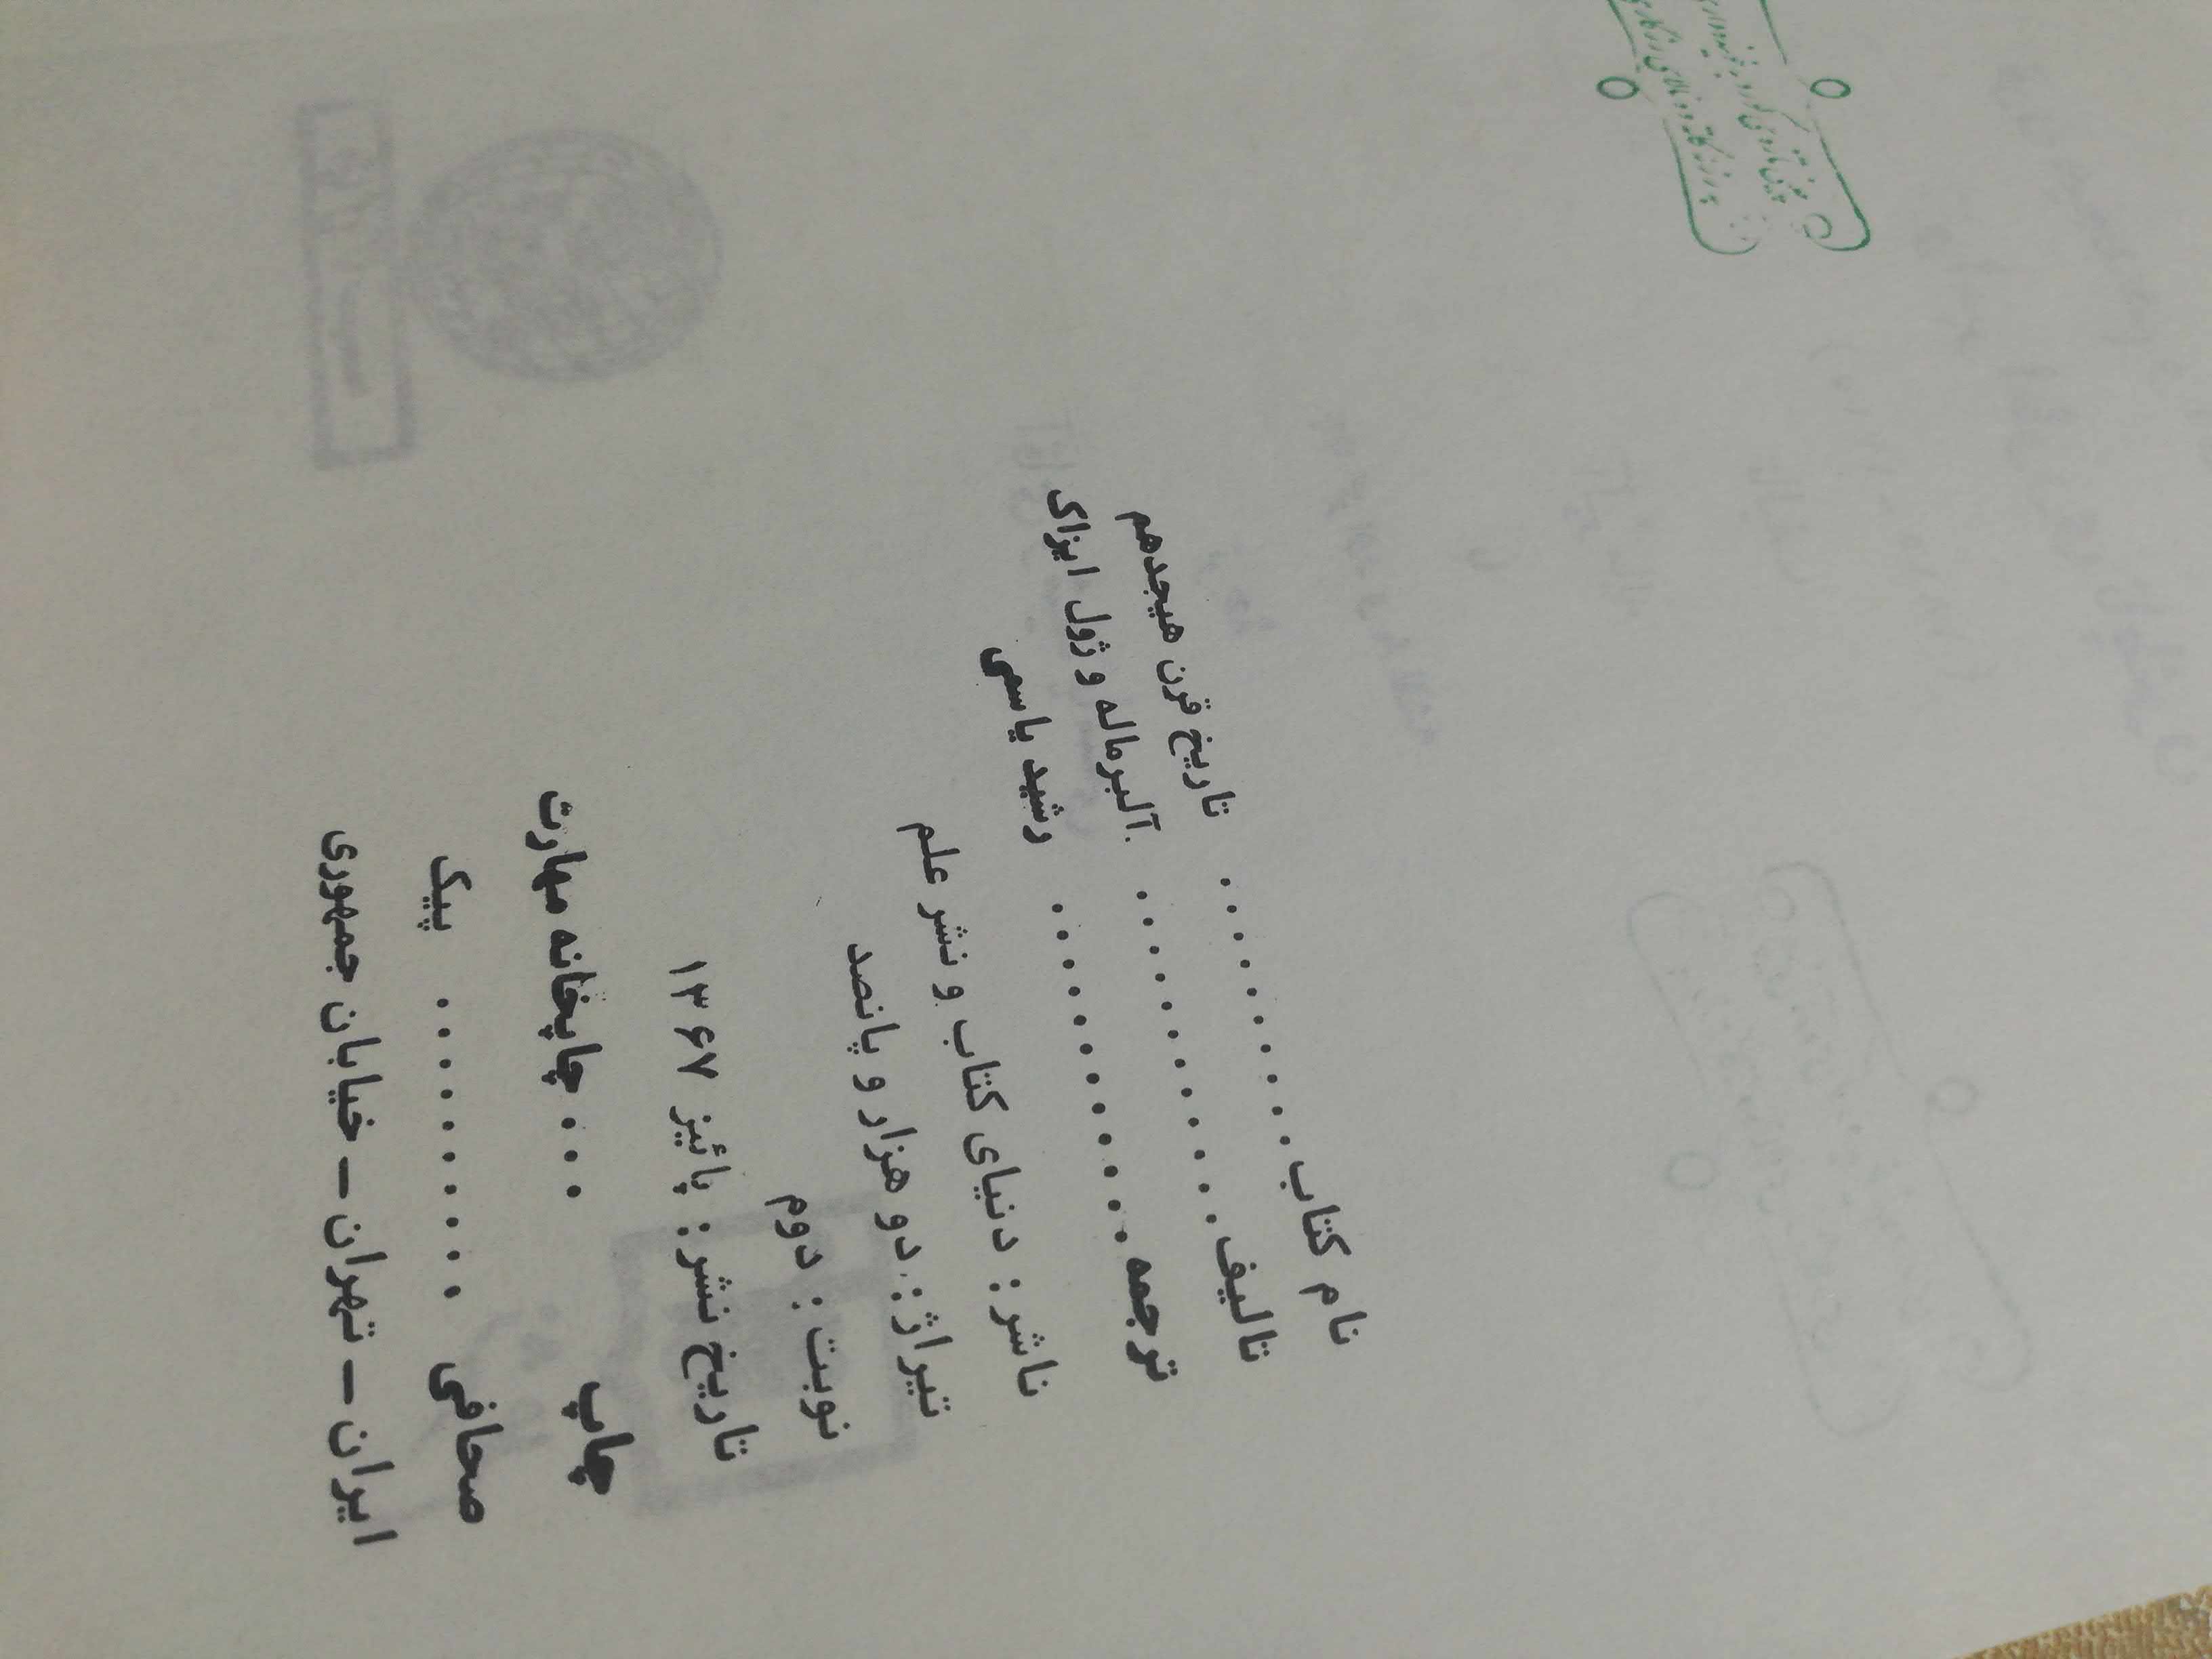 نام کتاب.......... تاریخ قرن هیجدهم
تالیف............ آلبرماله و ژول ایزاک
ترجمه............ رشید یاسمی
ناشر: دنیای کتاب و نشر علم
تیراژ: دو هزار و پانصد
نوبت: دوم
تاریخ نشر: پائیز ۱۳۶۷
چاپ ... چاپخانه مهارت
صحافی .......... پیک
ایران - تهران - خیابان جمهوری